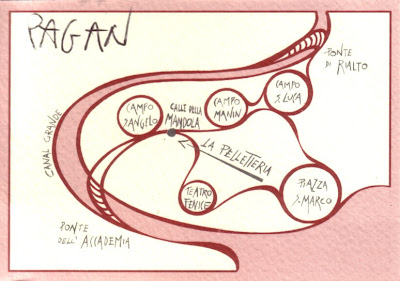 PAGAN
PONTE
DI RIALTO
CAMPO
S. LUCA
CAMPO
MANIN
CALLE DELLA
MANDOLA
CAMPO
S. ANGELO
CANAL GRANDE
LA PELLETTERIA
TEATRO
FENICE
PIAZZA
S. MARCO
PONTE
DELL'ACCADEMIA